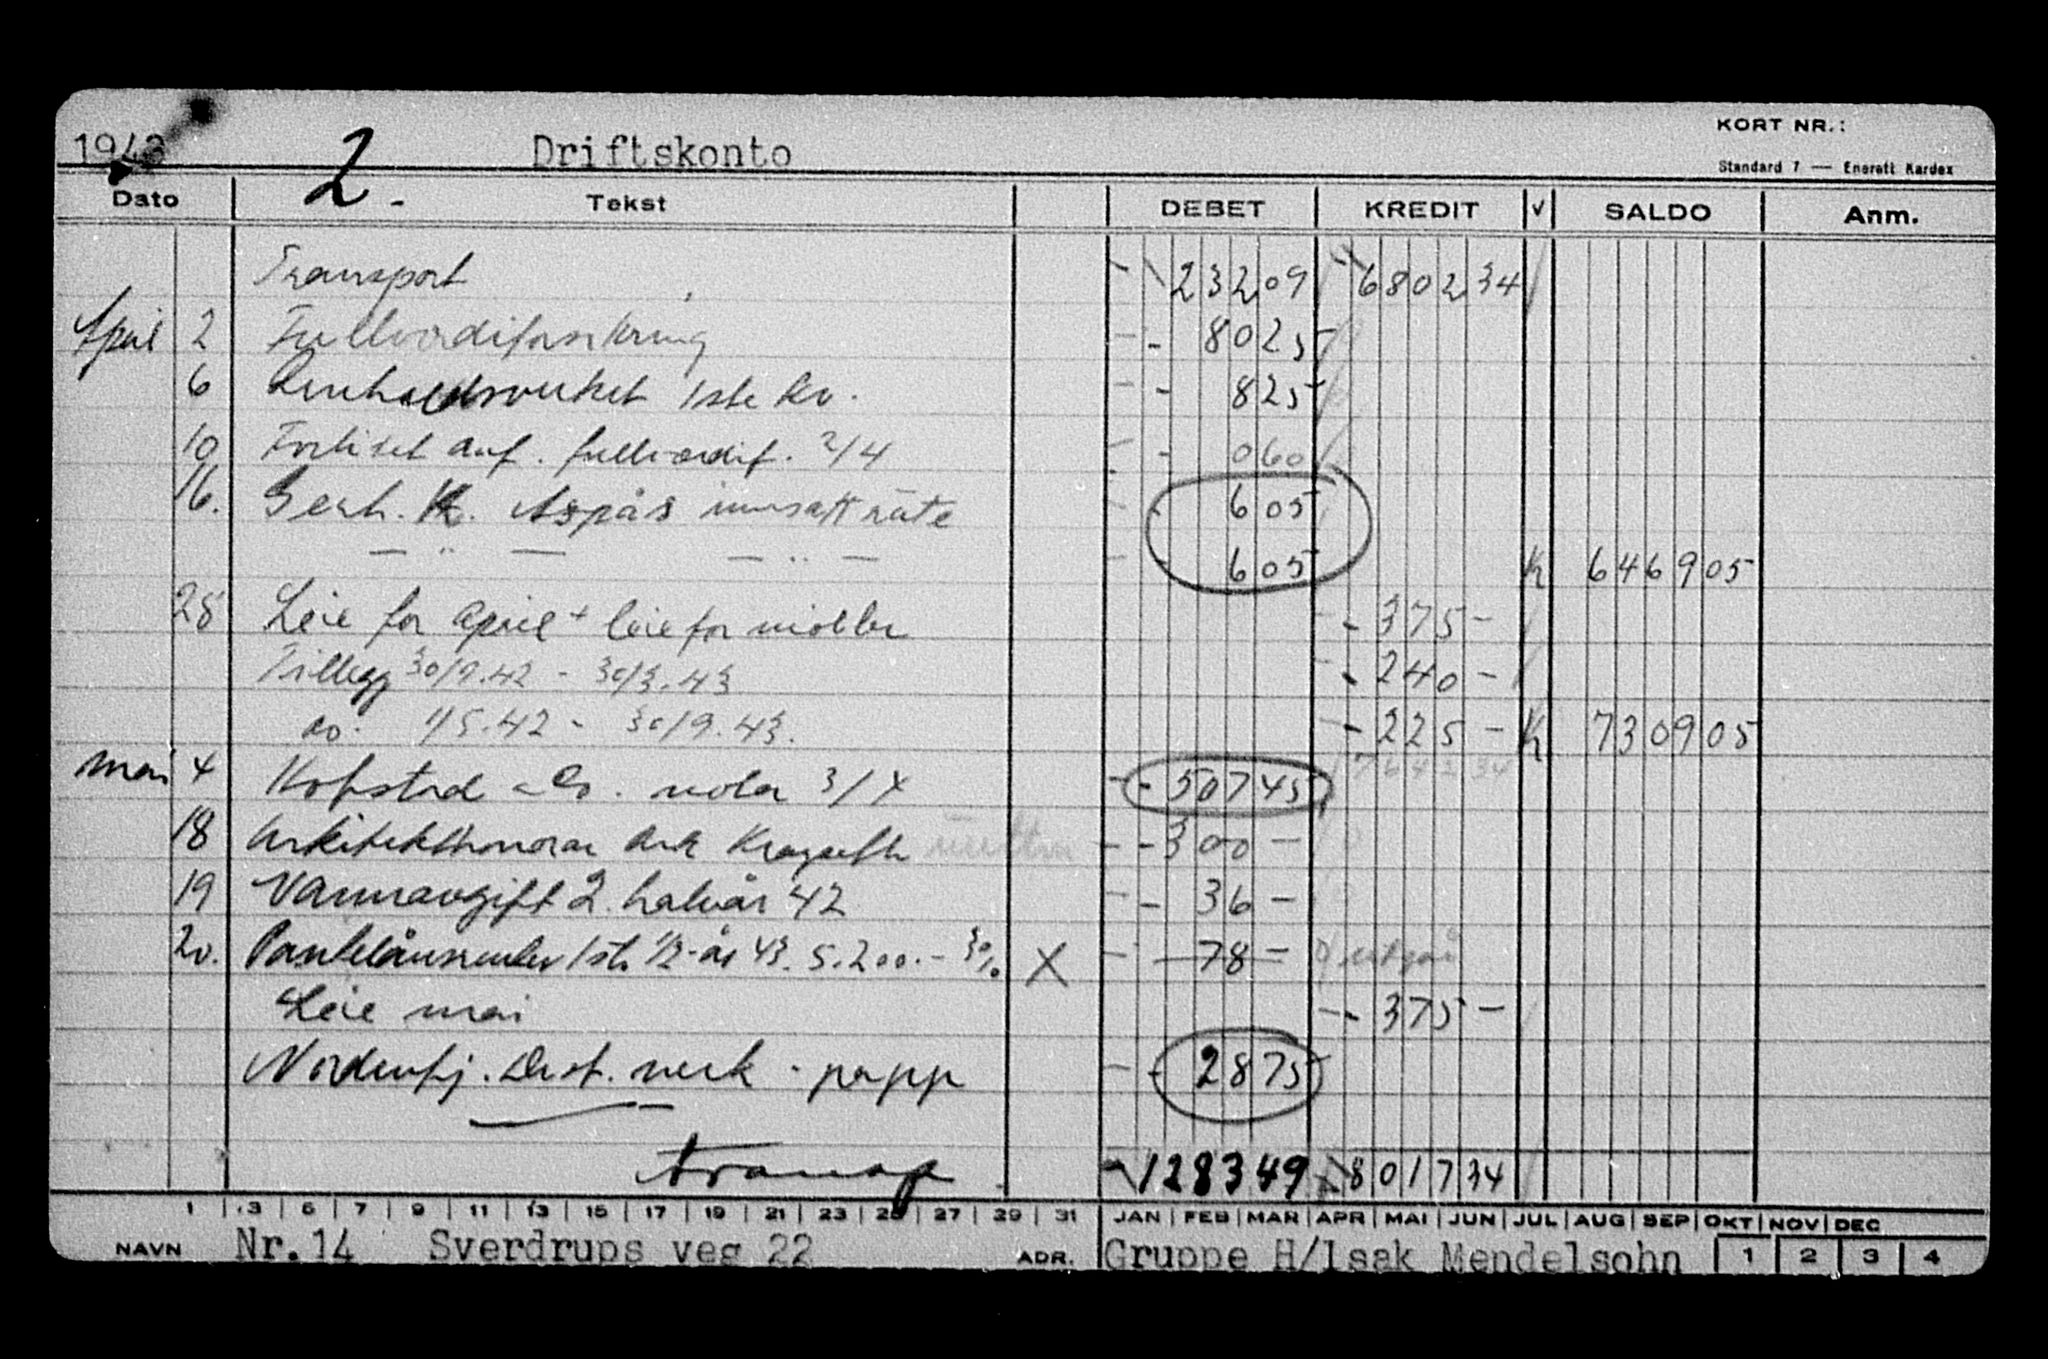 1943 2. Driftskonto KORT NR.:
Standard 7 — Enerett Kardex
Dato Tekst DEBET KREDIT V SALDO Anm.
Transport 232 09 6802 34
April 2 Fullverdiforsikring 80 25
6 Renholdsverket 1ste kv. 8 25
10 avf. fullverdif. 2/4 0 60
16. Gerh. K. Aspås innsatt rute 6 05
— " — — " — 6 05 K 6469 05
28 Leie for april + leie for møbler 375 -
Tillegg 30/9.42 - 30/3.43 240 -
do. 1/5.42 - 30/9.43. 225 - K 7309 05
mai 4 Kofstad & Co. nota 3/4 507 45 7642 34
18 Arkitekthonorar Ark Kragseth 300 -
19 Vannavgift 2. halvår 42 36 -
20. Pantelånsrenter 1ste 1/2-år 43. 5.200.- 3% X 78 - utgår
Leie mai 375 -
Nordenfj. Dest. verk - papp 28 75
Transp 1283 49 8017 34
1 3 5 7 9 11 13 15 17 19 21 23 25 27 29 31 JAN FEB MAR APR MAI JUN JUL AUG SEP OKT NOV DEC
NAVN Nr.14 Sverdrups veg 22 ADR. Gruppe H/Isak Mendelsohn 1 2 3 4